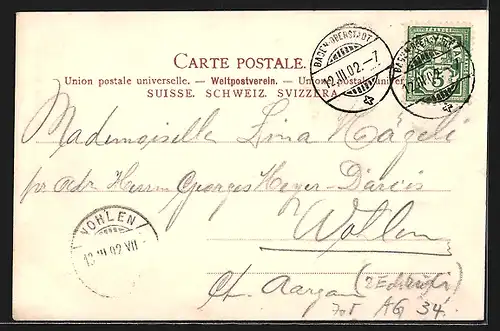 CARTE POSTALE.
Union postale universelle. — Weltpostverein. — Union postale universelle.
SUISSE. SCHWEIZ. SVIZZERA.
BADEN-OBERSTADT
12.III.02.-7
5
Mademoiselle Lina Nägeli
pr adr. Herrn Georges Meyer-Darcis
Wohlen
Ct. Aargau
AG 34.
WOHLEN
13.III.02.VII